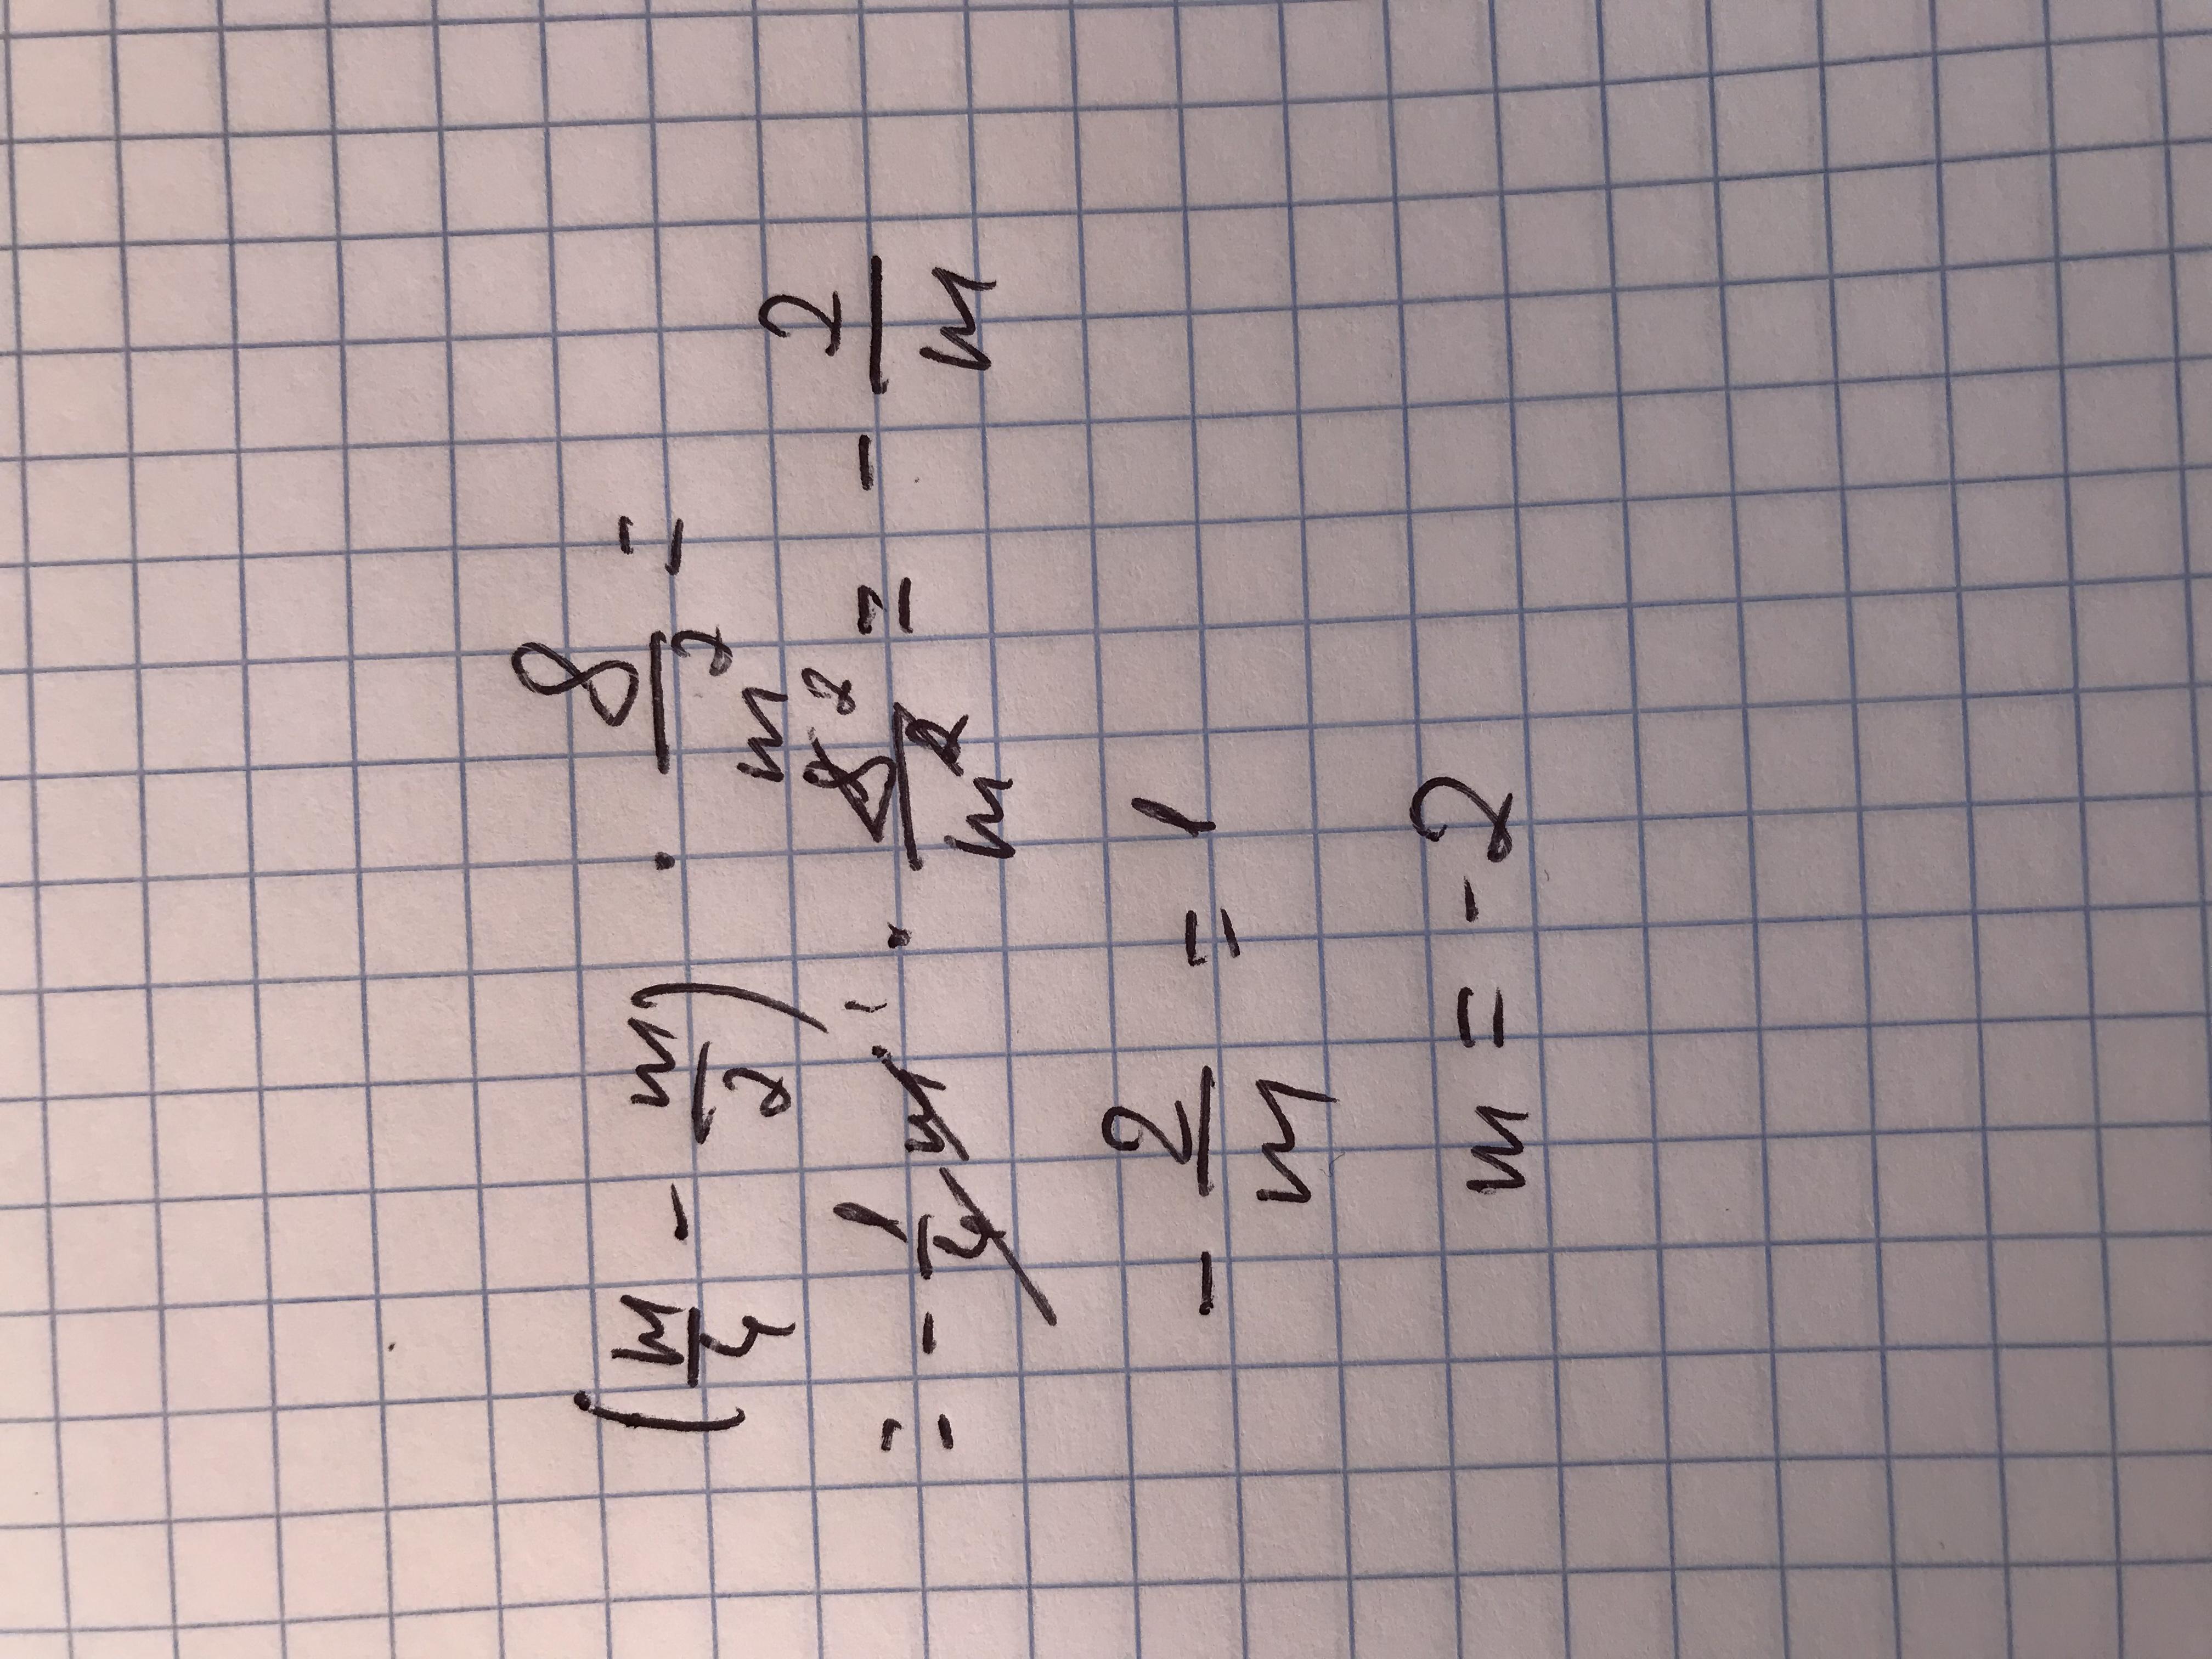 (m/4 - m/2) · 8/m² =
= - 1/4 m · 8/m² = - 2/m
- 2/m = 1
m = -2